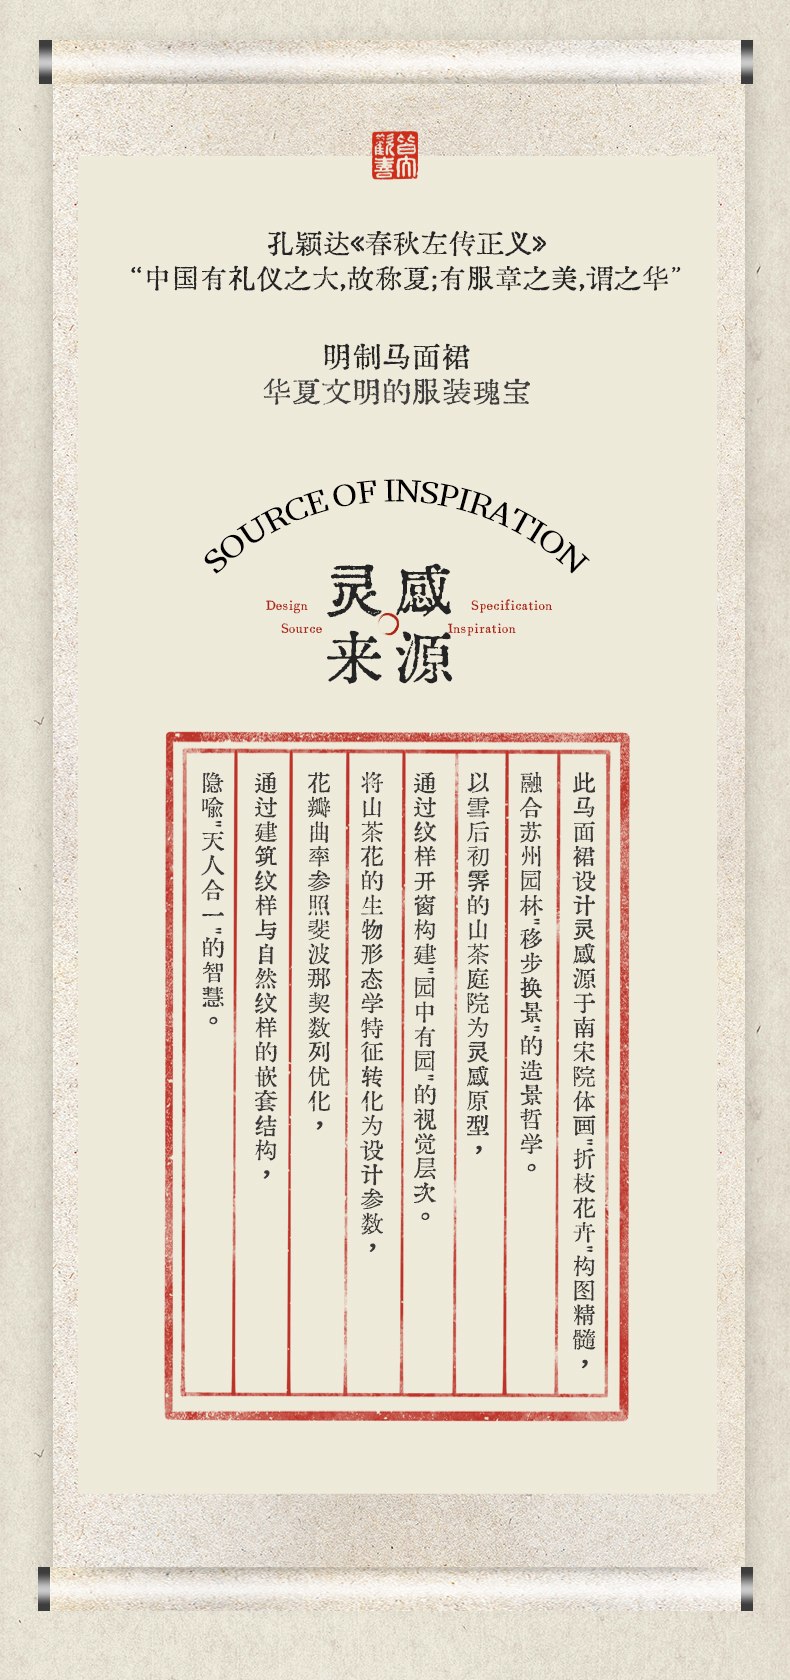 孔颖达《春秋左传正义》
“中国有礼仪之大,故称夏;有服章之美,谓之华”
明制马面裙
华夏文明的服装瑰宝
SOURCE OF INSPIRATION
灵感
来源
Design
Source
Specification
Inspiration
此马面裙设计灵感源于南宋院体画"折枝花卉"构图精髓，
融合苏州园林"移步换景"的造景哲学。
以雪后初霁的山茶庭院为灵感原型，
通过纹样开窗构建"园中有园"的视觉层次。
将山茶花的生物形态学特征转化为设计参数，
花瓣曲率参照斐波那契数列优化，
通过建筑纹样与自然纹样的嵌套结构，
隐喻"天人合一"的智慧。